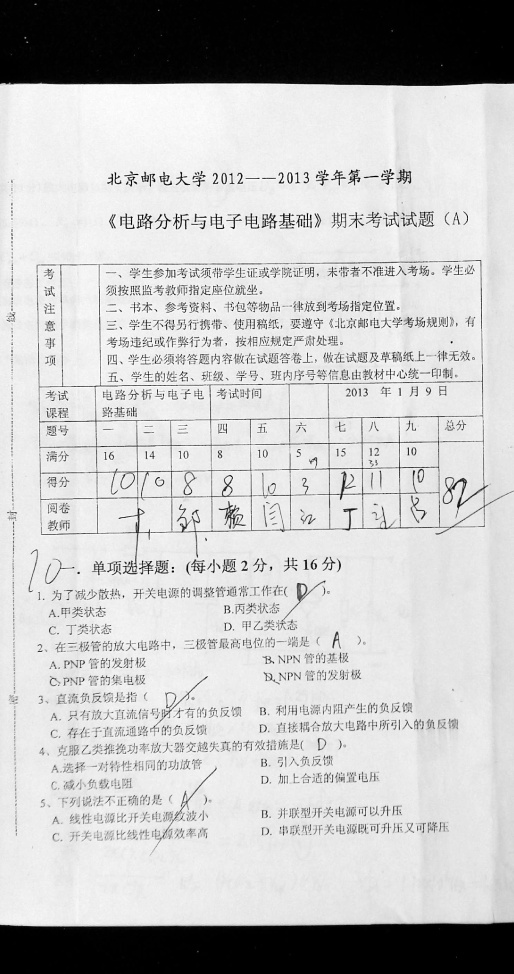 北京邮电大学2012——2013学年第一学期
《电路分析与电子电路基础》期末考试试题（A）
考试注意事项
一、学生参加考试须带学生证或学院证明，未带者不准进入考场。学生必
须按照监考教师指定座位就坐。
二、书本、参考资料、书包等物品一律放到考场指定位置。
三、学生不得另行携带、使用稿纸，要遵守《北京邮电大学考场规则》，有
考场违纪或作弊行为者，按相应规定严肃处理。
四、学生必须将答题内容做在试题答卷上，做在试题及草稿纸上一律无效。
五、学生的姓名、班级、学号、班内序号等信息由教材中心统一印制。
考试课程 电路分析与电子电路基础 考试时间 2013 年 1 月 9 日
题号 一 二 三 四 五 六 七 八 九 总分
满分 16 14 10 8 10 5 15 12 10
得分 10 10 8 8 10 3 12 11 10 82
阅卷教师
10
一．单项选择题：(每小题 2 分，共 16 分)
1. 为了减少散热，开关电源的调整管通常工作在( D )。
A.甲类状态 B.丙类状态
C. 丁类状态 D. 甲乙类状态
2、在三极管的放大电路中，三极管最高电位的一端是（ A ）。
A. PNP 管的发射极 B. NPN 管的基极
C. PNP 管的集电极 D. NPN 管的发射极
3、直流负反馈是指（ D ）。
A. 只有放大直流信号时才有的负反馈 B. 利用电源内阻产生的负反馈
C. 存在于直流通路中的负反馈 D. 直接耦合放大电路中所引入的负反馈
4、克服乙类推挽功率放大器交越失真的有效措施是( D )。
A.选择一对特性相同的功放管 B. 引入负反馈
C. 减小负载电阻 D. 加上合适的偏置电压
5、下列说法不正确的是（ A ）。
A. 线性电源比开关电源纹波小 B. 并联型开关电源可以升压
C. 开关电源比线性电源效率高 D. 串联型开关电源既可升压又可降压